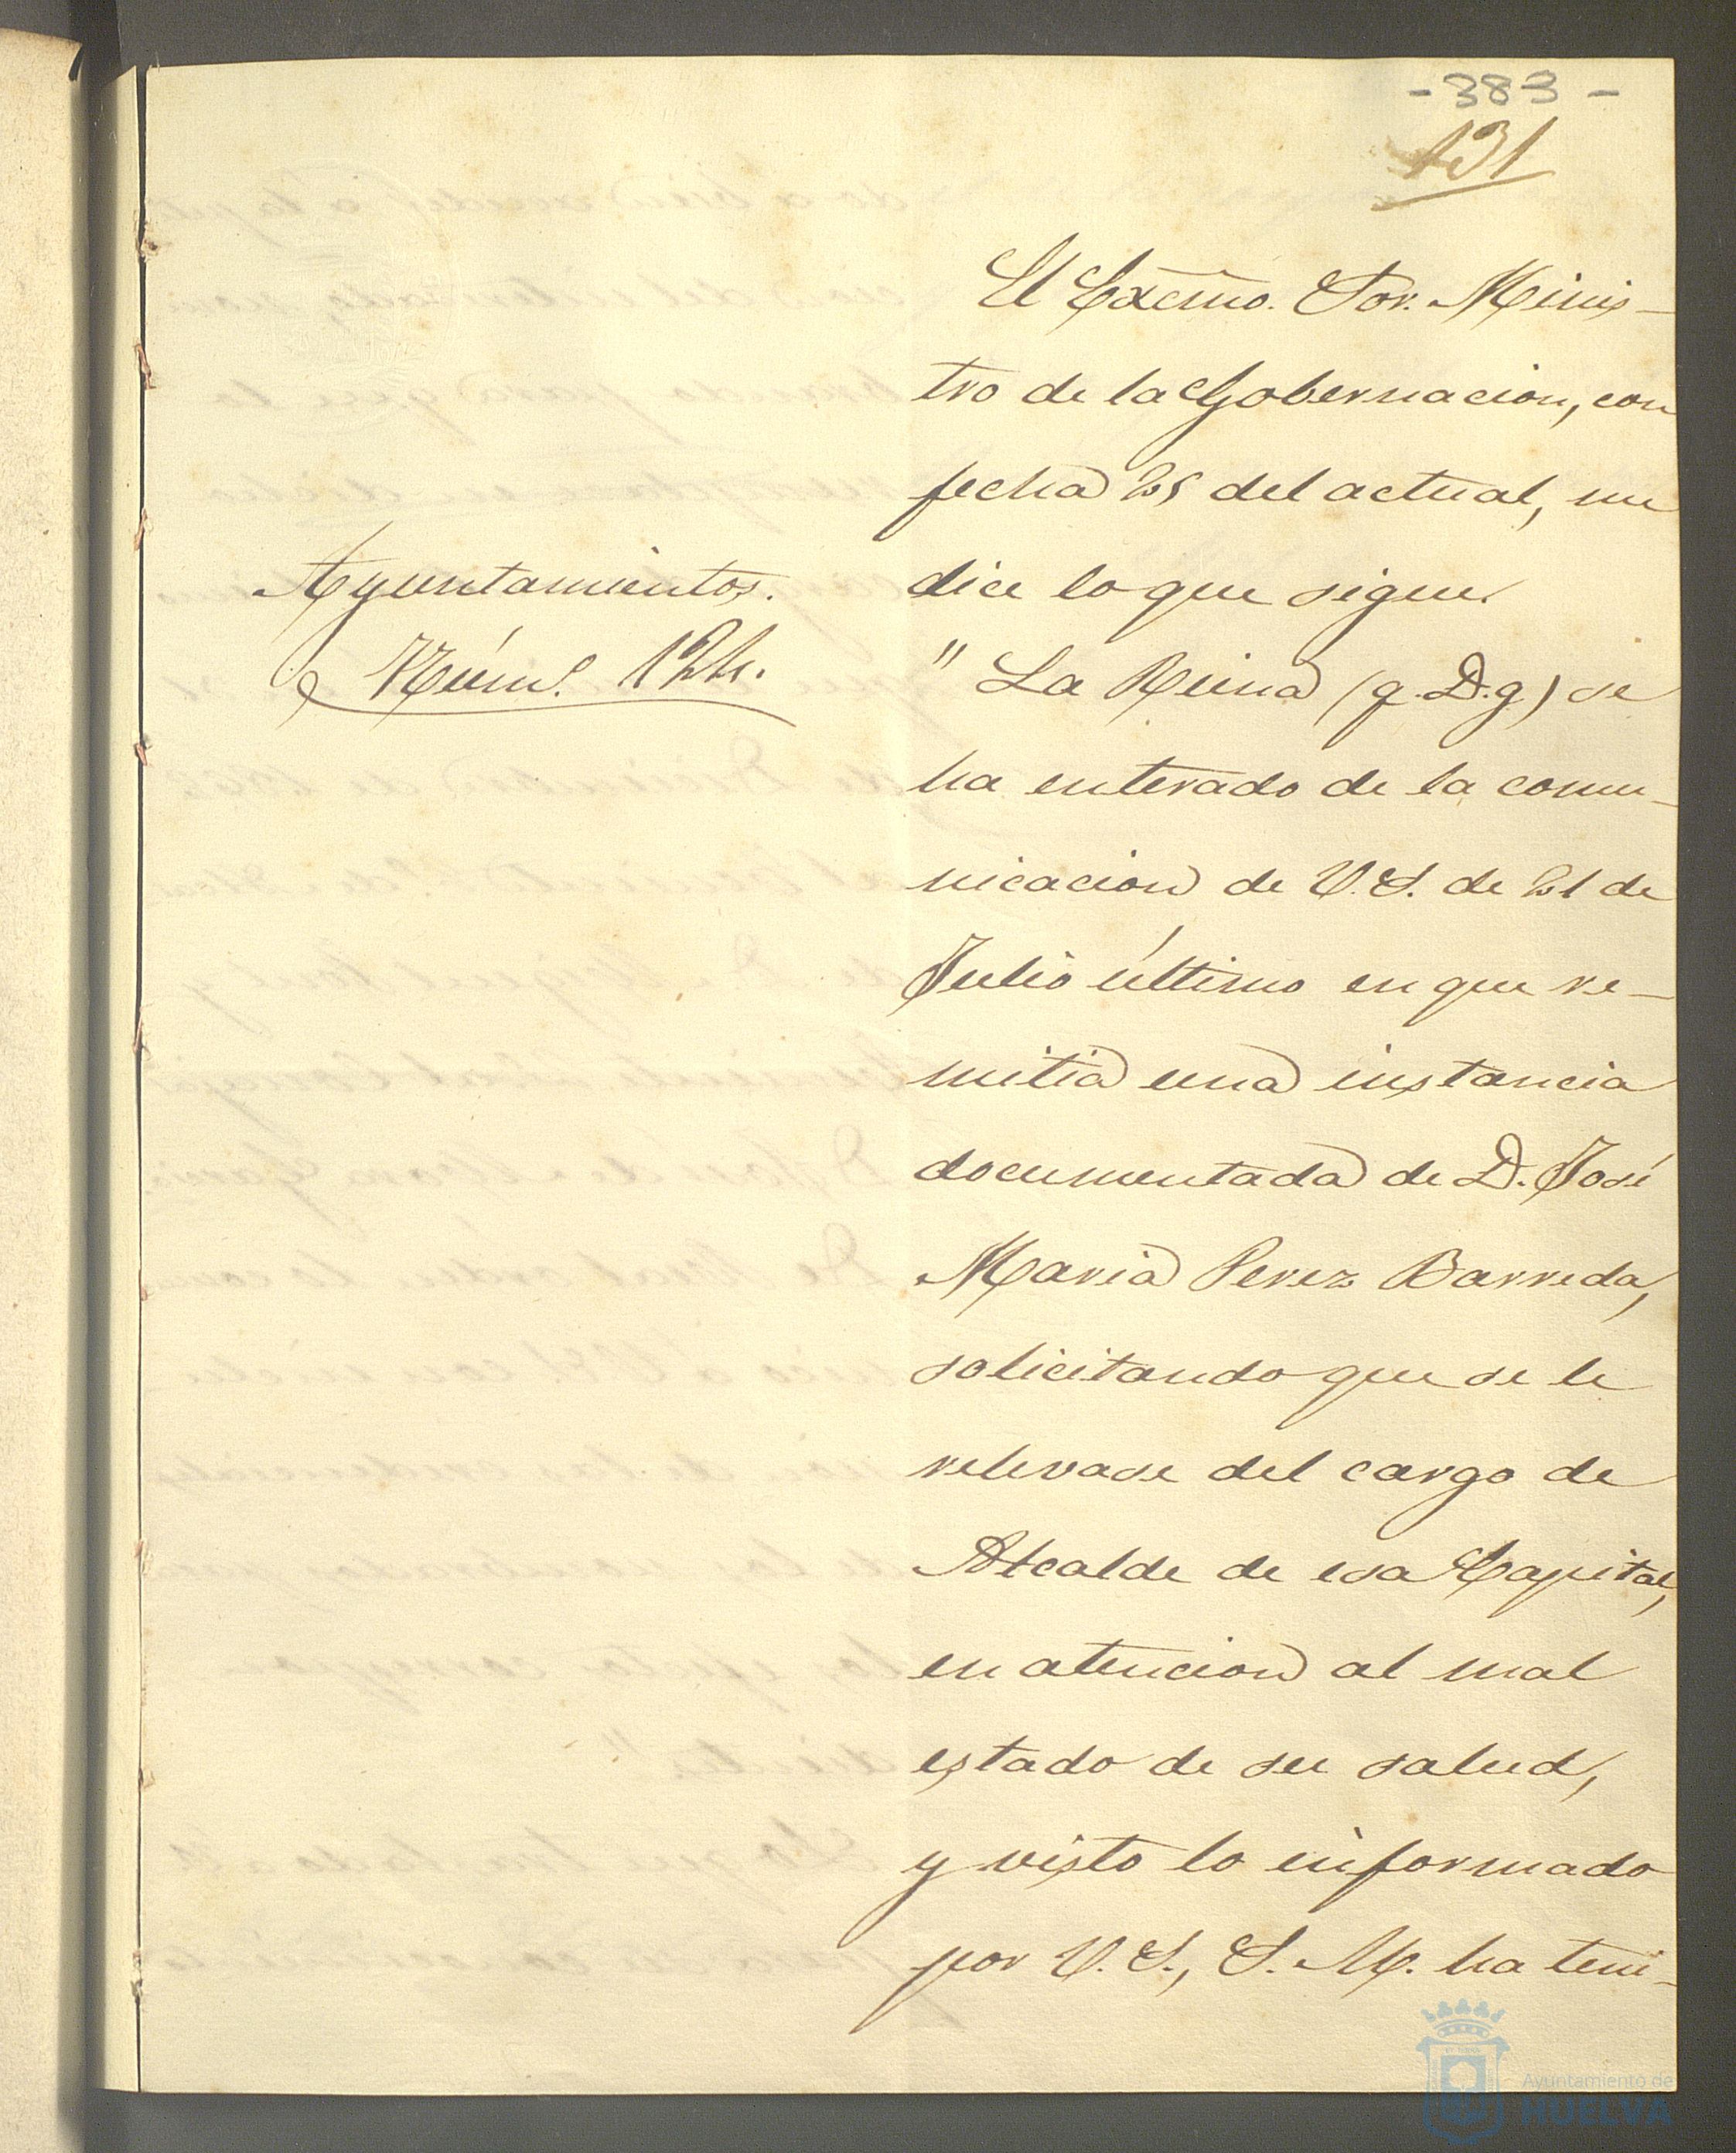 -383-
131
El Excmo. Sor. Minis-
tro de la Gobernacion, con
fecha 25 del actual, me
dice lo que sigue.
Ayuntamientos.
Núm. 124.
" La Reina (q. D. g) se
ha enterado de la comu-
nicacion de V. S. de 21 de
Julio último en que re-
mitia una instancia
documentada de D. José
Maria Perez Barreda,
solicitando que se le
relevase del cargo de
Alcalde de esa Capital,
en atencion al mal
estado de su salud,
y visto lo informado
por V. S., S. M. ha teni-
Ayuntamiento de
HUELVA